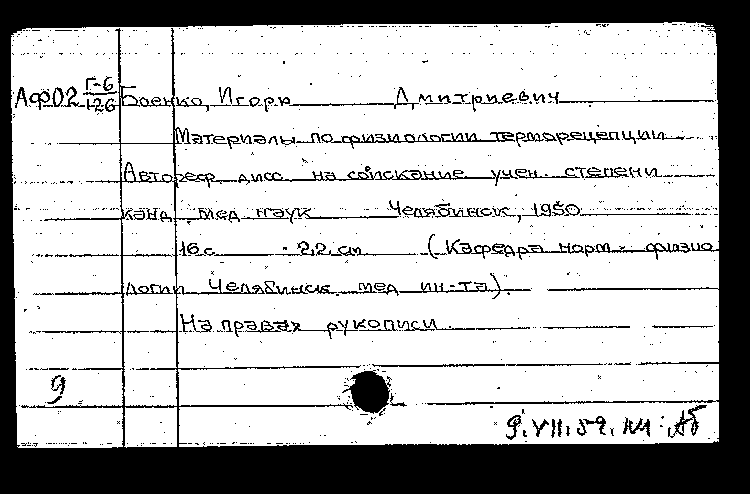 АФ02 Г-6/126 Боенко, Игорь Дмитриевич
Материалы по физиологии терморецепции
Автореф. дисс. на соискание учен. степени
канд. мед наук Челябинск, 1950
16 с. 22 см (Кафедра норм. физио
логии Челябинск. мед ин-та).
На правах рукописи.
9
9.VII.59.